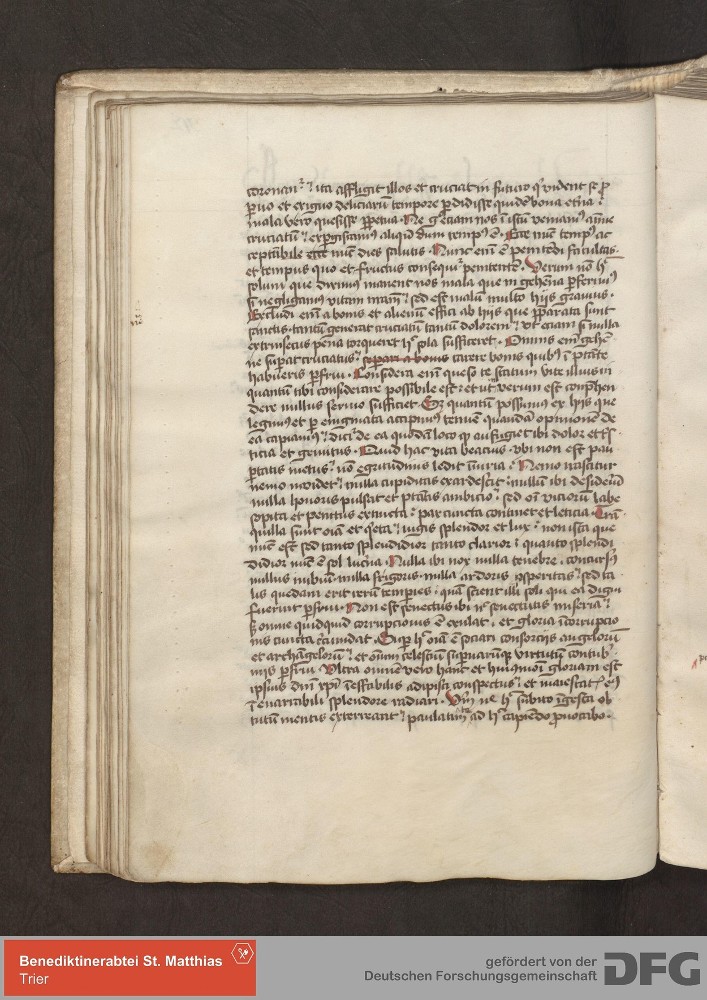 coronant᷑ ⁊ ita affligit illos et cruciat in futuro qꝰ vident se ꝓ
ꝑuo et exiguo deliciarū tempore ꝑdidisse quidē bona et̄na
mala vero quesisse ꝑpetua · Ne gͦ eciam nos ī istū veniamꝰ
cruciatū ⁊ exꝑgiscamꝰ aliqn̄ dum tempꝰ ē · Ecce nūc tempꝰ ac
ceptabile ecce nūc dies salutis · Nunc em̄ ē penitēdi facultas ·
et tempus quo et fructus consequit᷑ penitentē · Verum nō hͦ
solum que diximꝰ manent nos mala que in gehēna ꝑferimꝰ
si negligamꝰ vitam nr̄am ⁊ sed est malū multo hijs grauius ·
Excludi em̄ a bonis et alienū effici ab hijs que p̄parata sunt
sanctis · tantū generat cruciatū tantū dolorem ⁊ vt eciam si nulla
extrinsecus pena torqueret hͦ sola sufficeret · Omnis em̄ gehē
ne suꝑat cruciatus ⁊ separari a bonis carere bonis quibꝰ ī ptāte
habueris ꝑfrui · Considera em̄ queso te statum vite illius in
quantū tibi considerare possibile est · et ut verum est cōp̄hen
dere nullus sermo sufficiet · Sꝫ quantū possumꝰ ex hijs que
legimꝰ et ꝑ enigmata accipimꝰ tenuē quandā opinionē de
ea capiamꝰ ⁊ dicit᷑ de ea quodā loco qꝫ aufugiet ibi dolor et tris
ticia et gemitus · Quid hac vita beacius · vbi non est pau
ꝑtatis metus ⁊ nō egritudinis ledit īiuria · Nemo irascitur
nemo inuidet ⁊ nulla cupiditas exardescit · nullum ibi desideriū
nulla honoris pulsat et ptātis ambicio · sed om̄ viciorū labe
sopita et penitus extincta · pax cuncta continet et leticia · Trā
quilla sunt oīa et qͥeta ⁊ iugis splendor et lux · non ista que
nūc est sed tanto splendidior tanto clarior · quanto splendi
didior nūc ē sol luc̄na · Nulla ibi nox nulla tenebre · concursꝰ
nullus nubiū nulla frigoris · nulla ardoris asperitas ⁊ sed ta
lis quedam erit rerū temperies · quā scient illi soli qui ea dign
fuerint ꝑfrui · Non est senectus ibi nͨ senectutis miseria ⁊
sꝫ omne quidquid corrupcionis ē exulat · et gloria īcorrupcio
nis cuncta circūdat · Suꝑ hͦ oīa ē sociari consorcijs angelorū
et archāgelorū ⁊ et omniū celestiū suꝑnarūqꝫ virtutū contub
nijs ꝑfrui · Vltra omnē vero hanc et huiusmōi gloriam est
ipsius dn̄i xp̄i īeffabilis adipisci conspectus ⁊ et maiestatis eiꝰ
ī enarrabili splendore radiari · Vm̄ ne hͦ subito īgesta ob
tutū mentis exterreant ⁊ paulatim ad hͦ capiēdo ꝓuocabo ·
Benediktinerabtei St. Matthias
Trier
gefördert von der
Deutschen Forschungsgemeinschaft
DFG